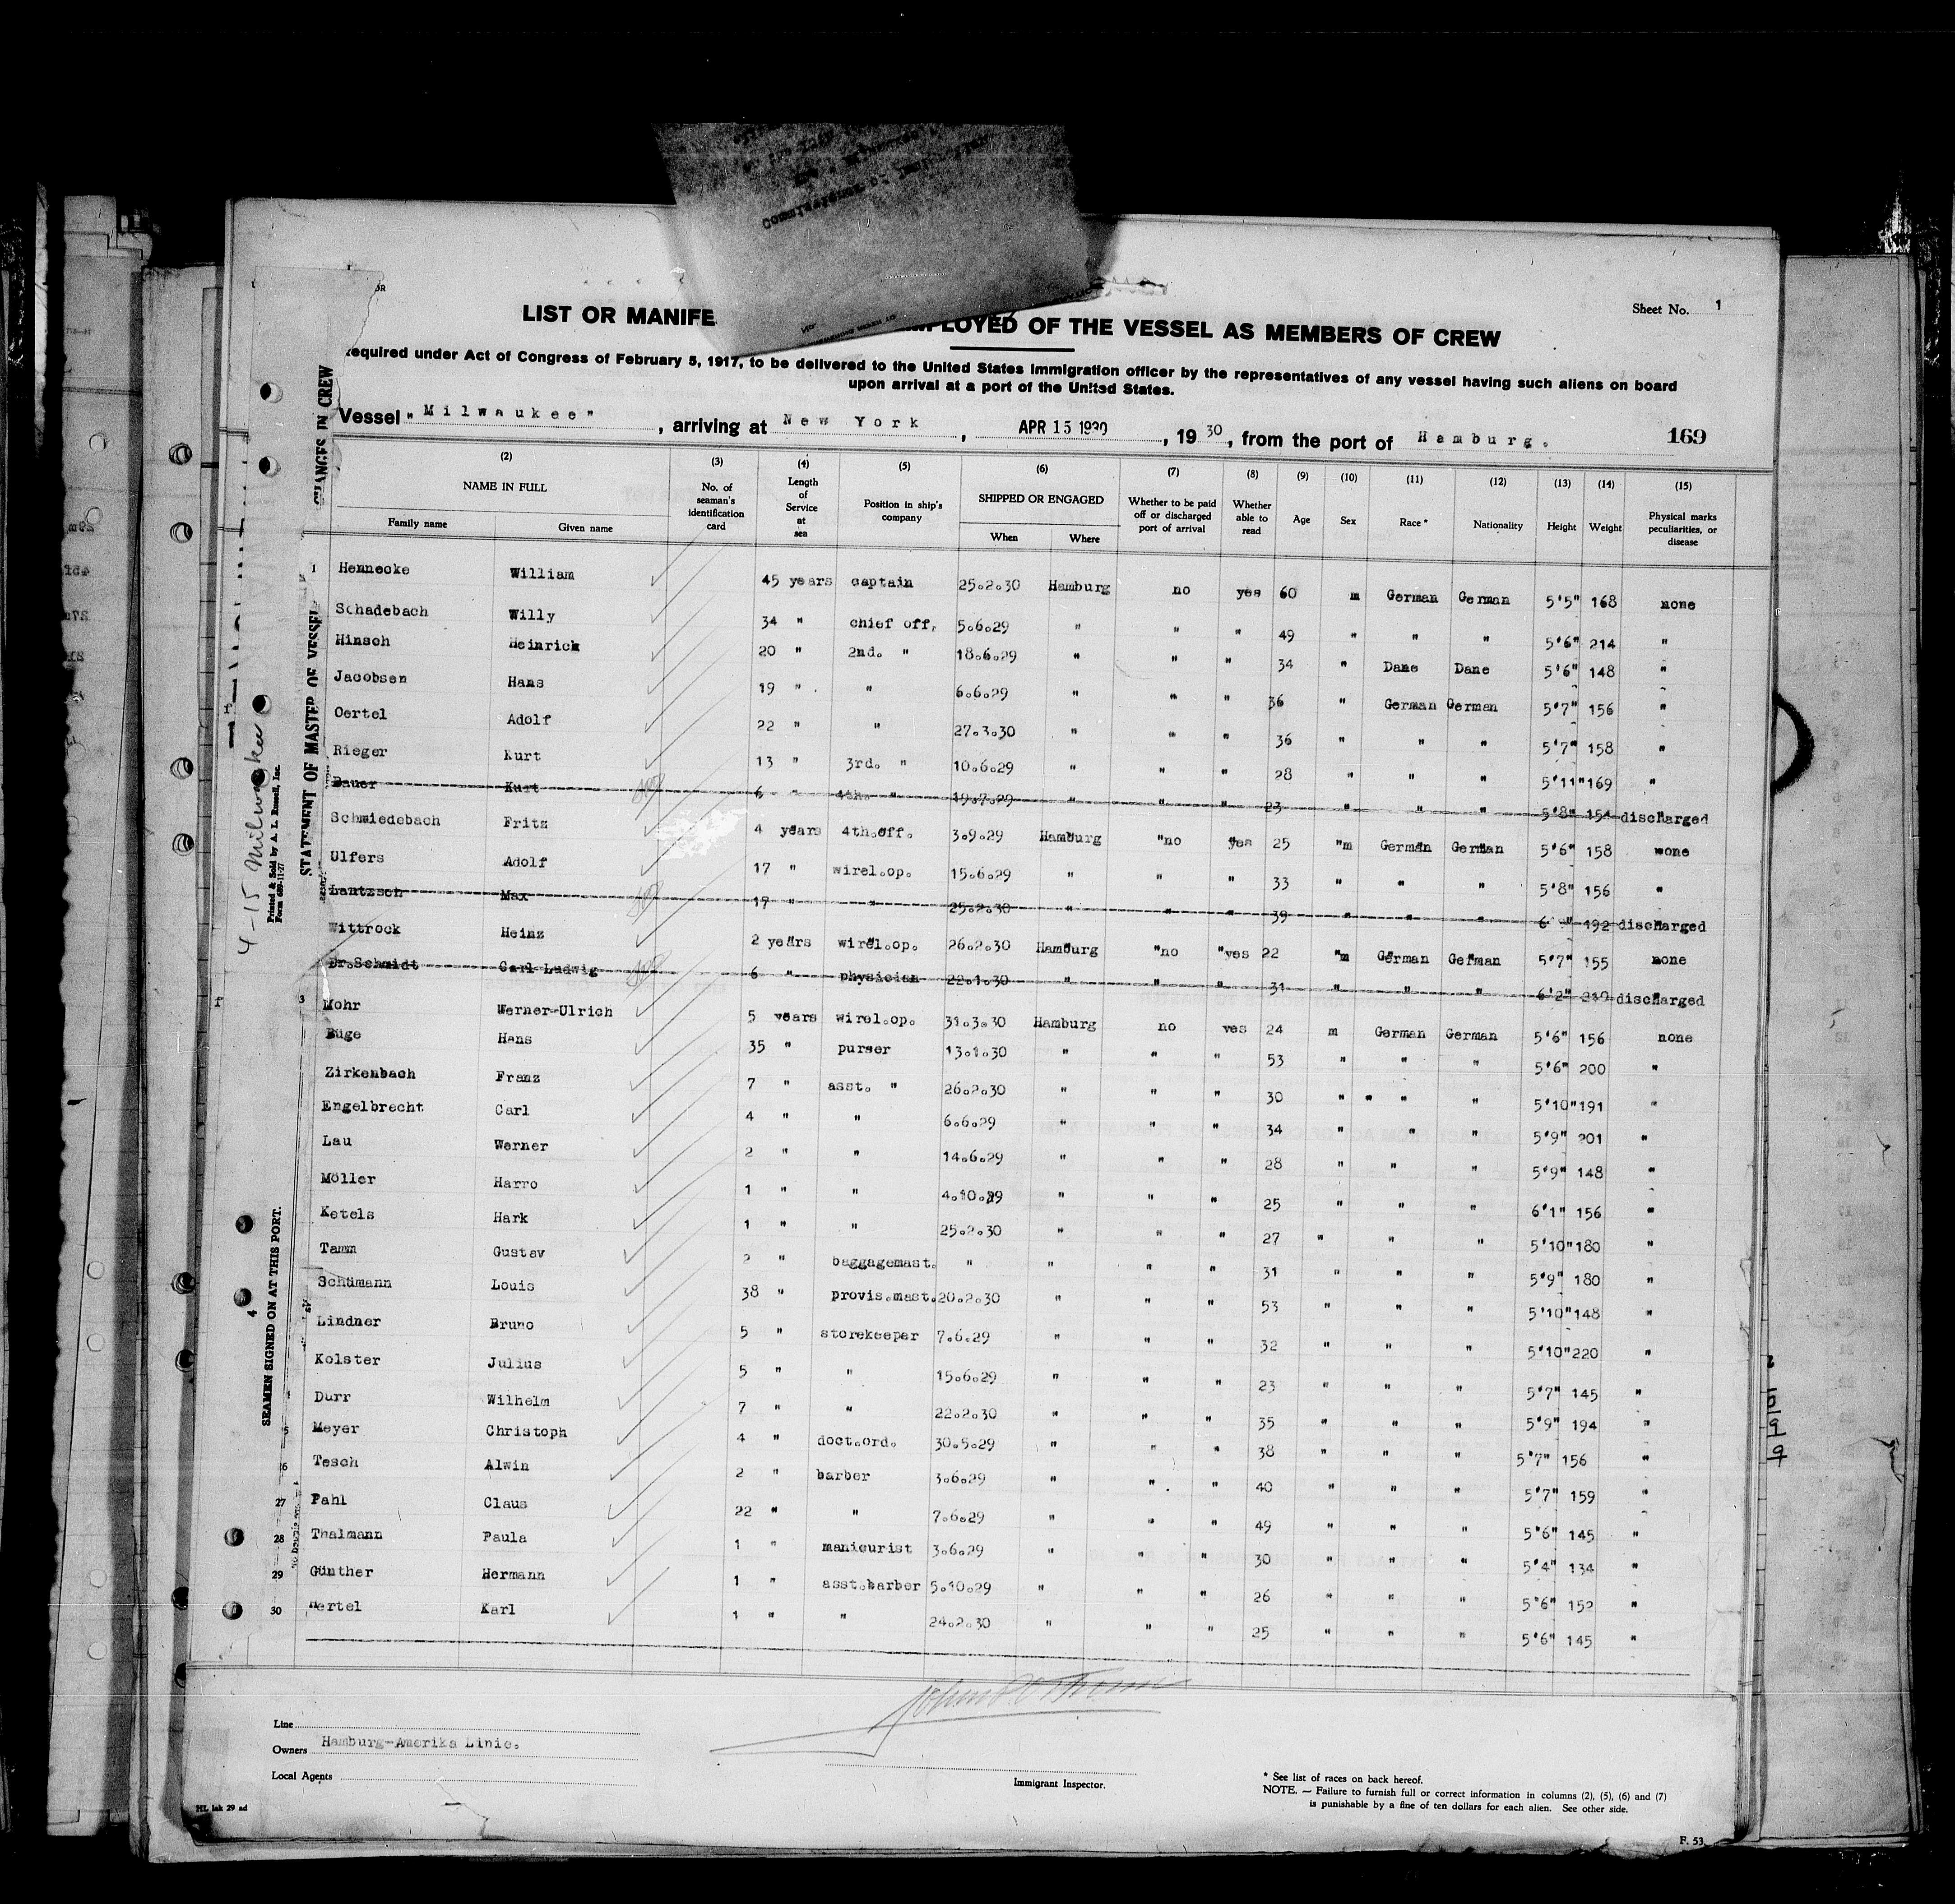 Commissioner of Immigration
Sheet No. 1
LIST OR MANIFE MPLOYED OF THE VESSEL AS MEMBERS OF CREW
equired under Act of Congress of February 5, 1917, to be delivered to the United States immigration officer by the representatives of any vessel having such aliens on board
upon arrival at a port of the United States.
Vessel "Milwaukee", arriving at New York, APR 15 1930, 1930, from the port of Hamburg. 169
(2) (3) (4) (5) (6) (7) (8) (9) (10) (11) (12) (13) (14) (15)
NAME IN FULL
Family name Given name
No. of seaman's identification card
Length of Service at sea
Position in ship's company
SHIPPED OR ENGAGED
When Where
Whether to be paid off or discharged port of arrival
Whether able to read
Age Sex Race* Nationality Height Weight
Physical marks peculiarities, or disease
1 Hennecke William 45 years captain 25.2.30 Hamburg no yes 60 m German German 5'5" 168 none
Schadebach Willy 34 " chief off. 5.6.29 " " " 49 " " " 5'6" 214 "
Hinsch Heinrich 20 " 2nd. " 18.6.29 " " " 34 " Dane Dane 5'6" 148 "
Jacobsen Hans 19 " " 6.6.29 " " " 36 " German German 5'7" 156 "
Oertel Adolf 22 " " 27.3.30 " " " 36 " " " 5'7" 158 "
Rieger Kurt 13 " 3rd. " 10.6.29 " " " 28 " " " 5'11" 169 "
Bauer Kurt 6 " 4th. " 19.7.29 " " " 23 " " " 5'8" 154 discharged
Schmiedebach Fritz 4 years 4th.off. 3.9.29 Hamburg "no yes 25 "m German German 5'6" 158 none
Ulfers Adolf 17 " wirel.op. 15.6.29 " " " 33 " " " 5'8" 156 "
Lantzsch Max 17 " " 25.2.30 " " " 39 " " " 6' " 192 discharged
Wittrock Heinz 2 years wirel.op. 26.2.30 Hamburg "no "yes 22 "m German German 5'7" 155 none
Dr.Schmidt Carl Ludwig 6 " physician 22.1.30 " " " 31 " " " 6'2" 210 discharged
3 Mohr Werner-Ulrich 5 years wirel.op. 31.3.30 Hamburg no yes 24 m German German 5'6" 156 none
Büge Hans 35 " purser 13.1.30 " " " 53 " " " 5'6" 200 "
Zirkenbach Franz 7 " asst. " 26.2.30 " " " 30 " " " " 5'10" 191 "
Engelbrecht Carl 4 " " 6.6.29 " " " 34 " " " 5'9" 201 "
Lau Werner 2 " " 14.6.29 " " " 28 " " " 5'9" 148 "
Möller Harro 1 " " 4.10.29 " " " 25 " " " 6'1" 156 "
Ketels Hark 1 " " 25.2.30 " " " 27 " " " 5'10" 180 "
Tamm Gustav 2 " baggagemast. " " " " 31 " " " 5'9" 180 "
Schümann Louis 38 " provis.mast. 20.2.30 " " " 53 " " " 5'10" 148 "
Lindner Bruno 5 " storekeeper 7.6.29 " " " 32 " " " 5'10" 220 "
Kolster Julius 5 " " 15.6.29 " " " 23 " " " 5'7" 145 "
Durr Wilhelm 7 " " 22.2.30 " " " 35 " " " 5'9" 194 "
5 Meyer Christoph 4 " doct.ord. 30.5.29 " " " 38 " " " 5'7" 156 "
6 Tesch Alwin 2 " barber 3.6.29 " " " 40 " " " 5'7" 159 "
27 Pahl Claus 22 " " 7.6.29 " " " 49 " " " 5'6" 145 "
28 Thalmann Paula 1 " manicurist 3.6.29 " " " 30 " " " 5'4" 134 "
29 Günther Hermann 1 " asst.barber 5.10.29 " " " 26 " " " 5'6" 152 "
30 Hertel Karl 1 " " 24.2.30 " " " 25 " " " 5'6" 145 "
Line
Owners Hamburg-Amerika Linie.
Local Agents
Immigrant Inspector.
* See list of races on back hereof.
NOTE. — Failure to furnish full or correct information in columns (2), (5), (6) and (7)
is punishable by a fine of ten dollars for each alien. See other side.
HL lak 29 ad
F. 53
CHANGES IN CREW
STATEMENT OF MASTER OF VESSEL
4-15 Milwaukee
Printed & Sold by A. L. Russell, Inc.
Form 689-11-27
4
SEAMEN SIGNED ON AT THIS PORT.